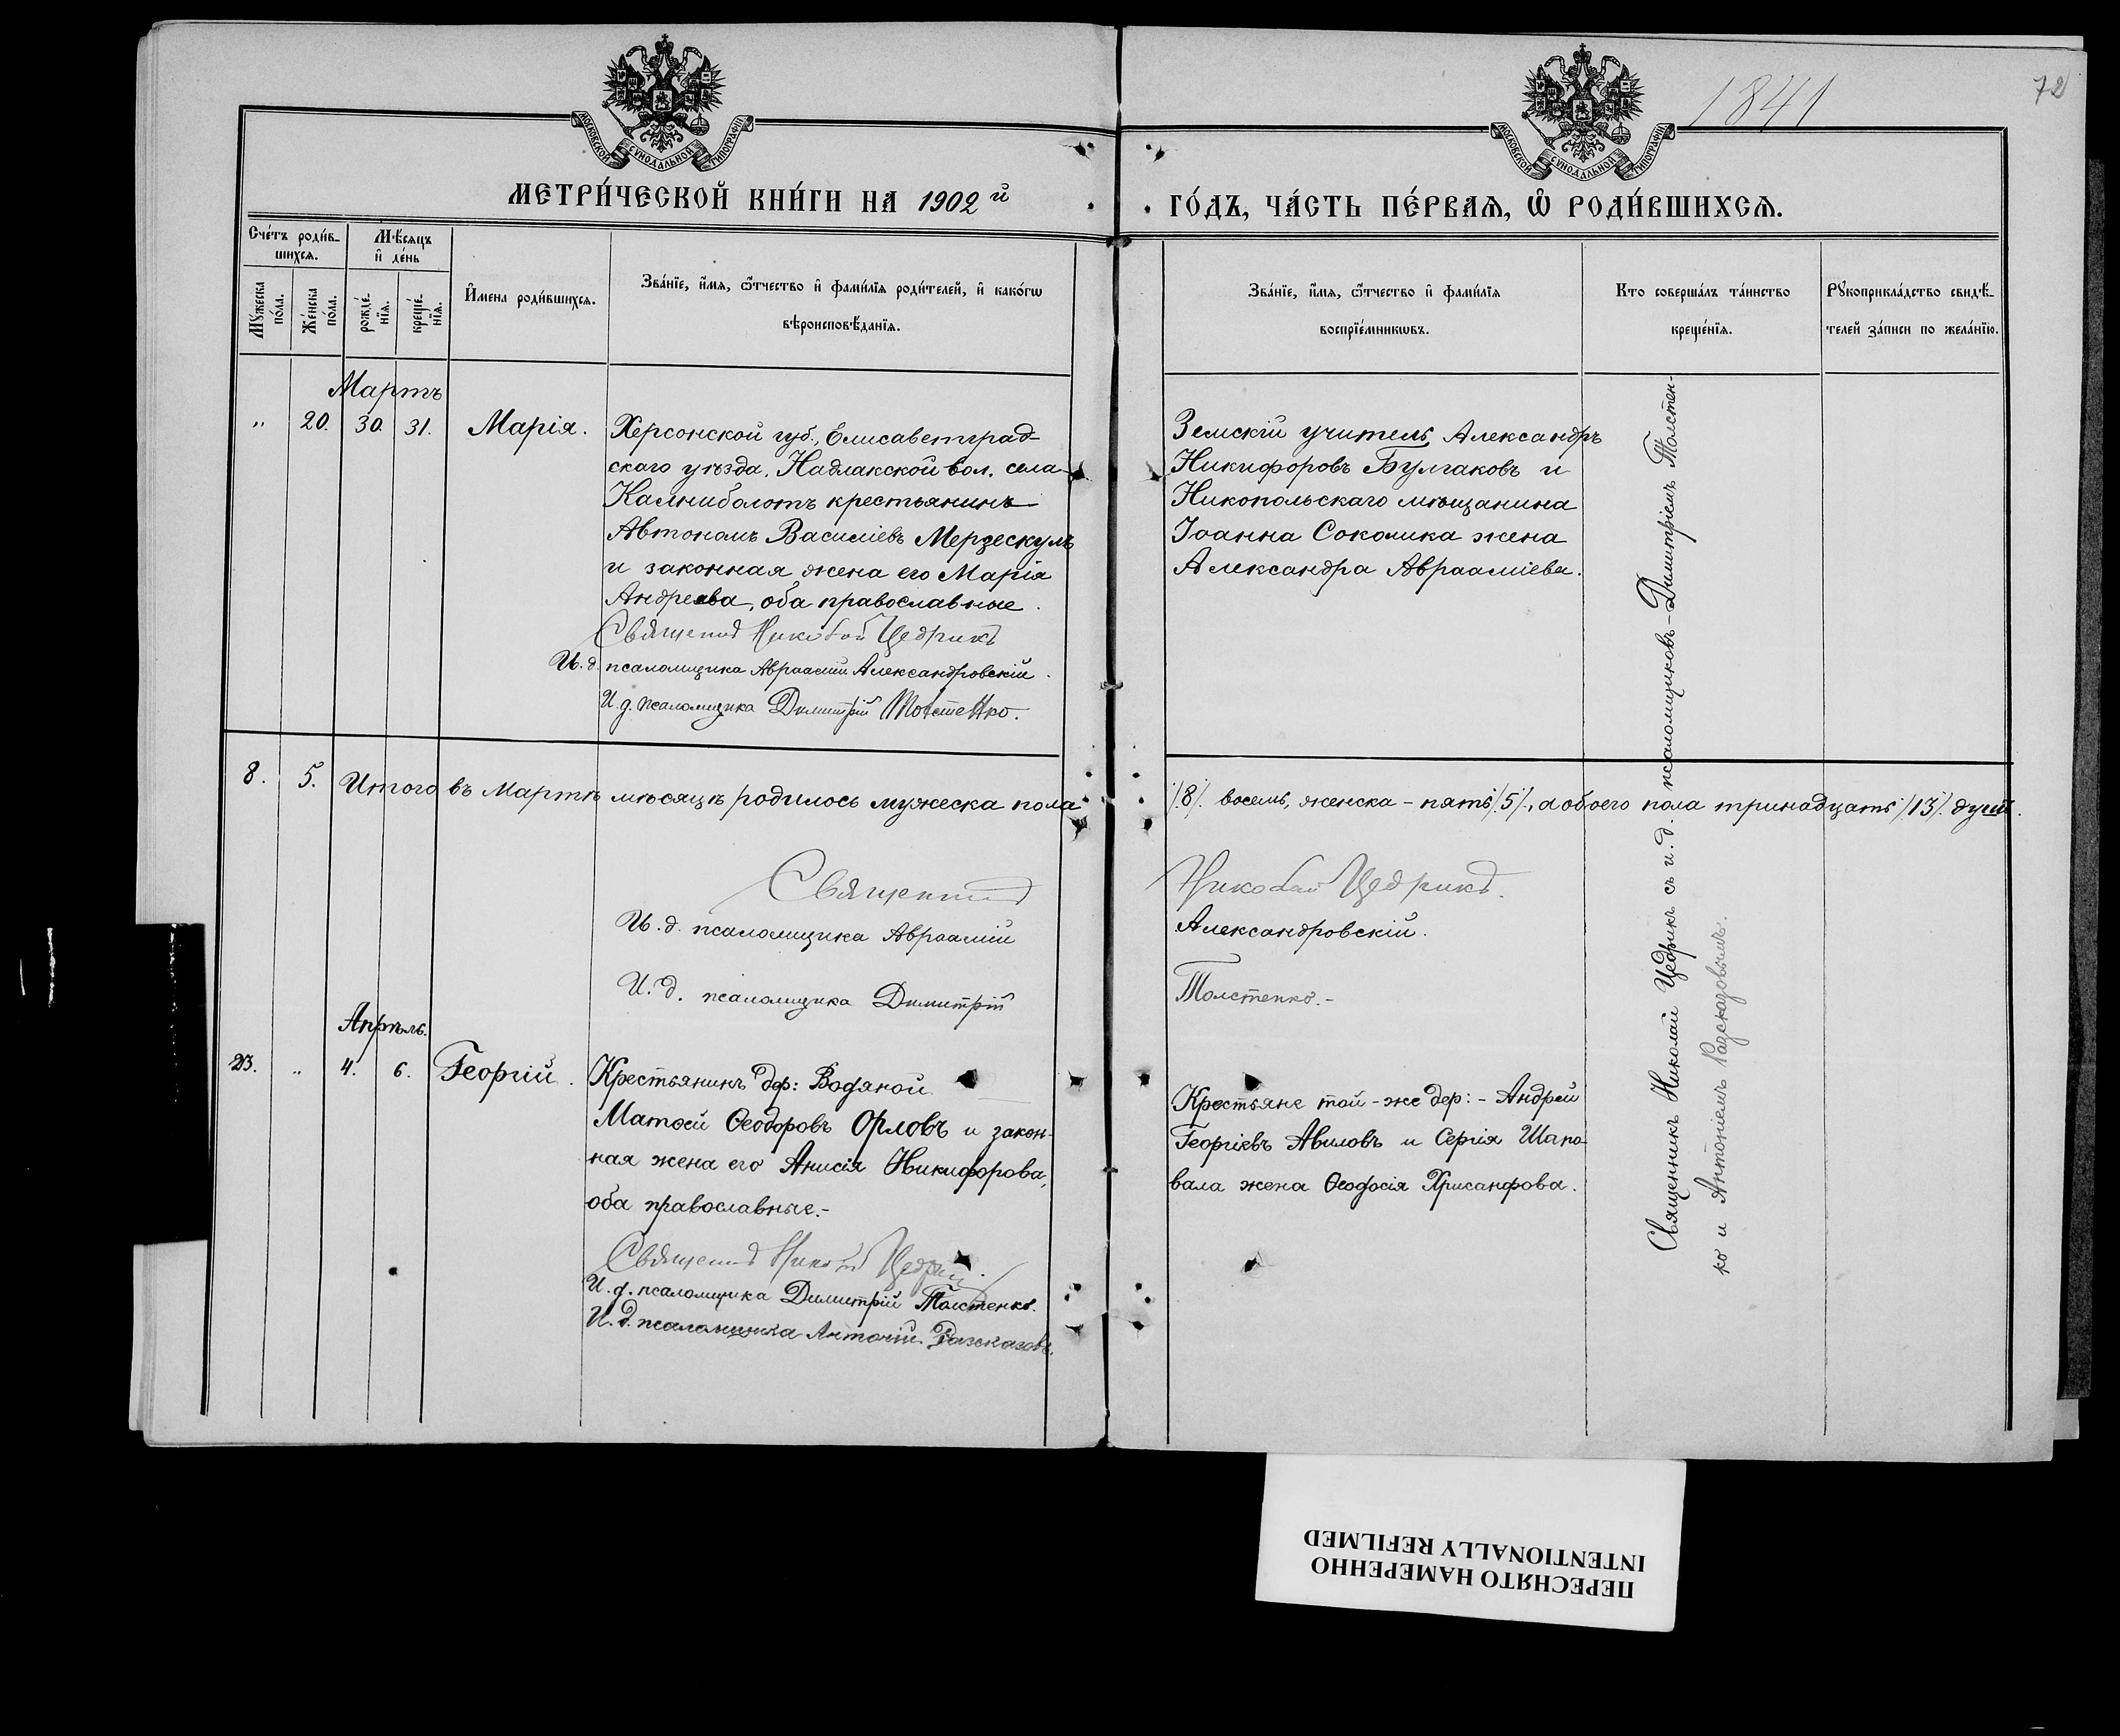 1841
72
МОСКОВСКОЙ СѴНОДАЛЬНОЙ ТИПОГРАФІИ
МОСКОВСКОЙ СѴНОДАЛЬНОЙ ТИПОГРАФІИ
МЕТРИ́ЧЕСКОЙ КНИ́ГИ НА 1902 й
ГО́ДЪ, ЧА́СТЬ ПЕ́РВАѦ, Ѡ҆ РОДИ́ВШИХСѦ.
Сче́тъ роди́в-
шихсѧ.
Мꙋ́жеска по́ла.
Же́нска по́ла.
Мѣ́сѧцъ
и҆ де́нь
рожде́-
нїѧ.
креще́-
нїѧ.
И҆мена роди́вшихсѧ.
Зва́нїе, и҆́мѧ, ѻ҆́тчество и҆ фами́лїѧ роди́телей, и҆ како́гѡ
вѣроисповѣ́данїѧ.
Зва́нїе, и҆́мѧ, ѻ҆́тчество и҆ фами́лїѧ
воспрїе́мникѡвъ.
Кто соверша́лъ та́инство
креще́нїѧ.
Рꙋкоприкла́дство свидѣ́-
телей за́писи по жела́нїю.
Мартъ
" 20. 30. 31. Марія.
Херсонской губ., Елисаветград-
скаго уѣзда, Надлакской вол. села
Камниболотъ крестьянинъ
Автономъ Василіевъ Мерзескулъ
и законная жена его Марія
Андреева, оба православные.
Священникъ Николай Цедрикъ
И. д. псаломщика Авраамій Александровскій.
И. д. псаломщика Димитрій Толстенко.
Земскій учитель Александръ
Никифоровъ Булгаковъ и
Никопольскаго мѣщанина
Іоанна Соколика жена
Александра Авраамiева.
8. 5. Итого въ Мартѣ мѣсяцѣ родилось мужеска пола
/8/. восемь, женска - пять /5/., а обоего пола тринадцать /13/. душъ.
Священникъ
Николай Цедрикъ.
И. д. псаломщика Авраамій
Александровскій.
И. д. псаломщика Димитрій
Толстенко.-
Апрѣль.
23. " 4. 6. Георгій.
Крестьянинъ дер: Водяной
Матѳей Ѳеодоровъ Орловъ и закон-
ная жена его Анисія Никифорова,
оба православные.-
Священникъ Николай Цедрикъ.
И. д. псаломщика Димитрій Толстенко.
И. д. псаломщика Антоній Разсказовъ.
Крестьяне той-же дер: - Андрей
Георгіевъ Авиловъ и Сергія Шапо-
вала жена Ѳеодосія Хрисанфова.
Священникъ Николай Цедрикъ съ и. д. псаломщиковъ - Димитріемъ Толстен-
ко и Антоніемъ Разсказовымъ.
ПЕРЕСНЯТО НАМЕРЕННО
INTENTIONALLY REFILMED